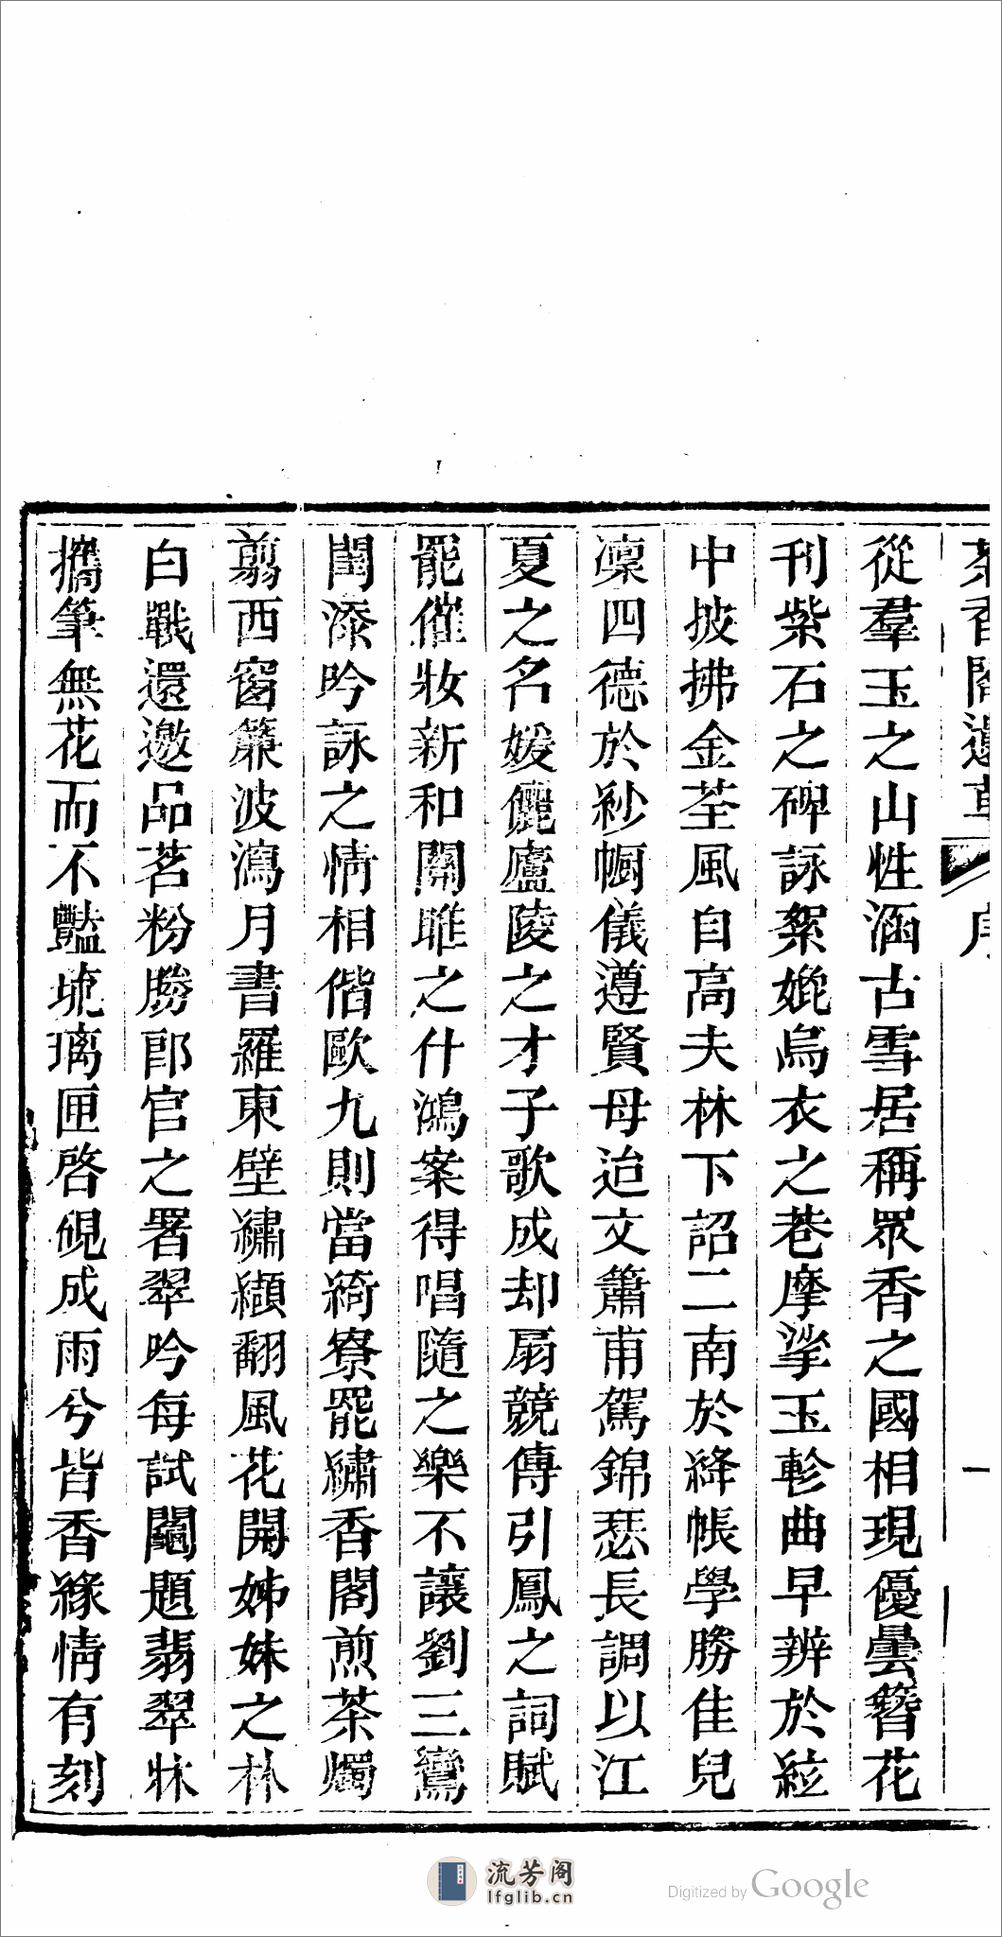 茶香閣遺草 序 一
從羣玉之山性涵古雪居稱眾香之國相現優曇簪花
刊紫石之碑詠絮媲烏衣之巷摩挲玉軫曲早辨於絃
中披拂金荃風自高夫林下詔二南於絳帳學勝佳兒
凜四德於紗幮儀遵賢母迨文簫甫駕錦瑟長調以江
夏之名媛儷廬陵之才子歌成却扇競傳引鳳之詞賦
罷催妝新和關雎之什鴻案得唱隨之樂不讓劉三鸞
閨添吟詠之情相偕歐九則當綺寮罷繡香閣煎茶燭
翦西窗簾波瀉月書羅東壁繡纈翻風花開姊妹之林
白戰還邀品茗粉勝郎官之署翠吟每試鬮題翡翠牀
攜筆無花而不豔琉璃匣啓硯成雨兮皆香緣情有刻
流芳阁
lfglib.cn
Digitized by Google